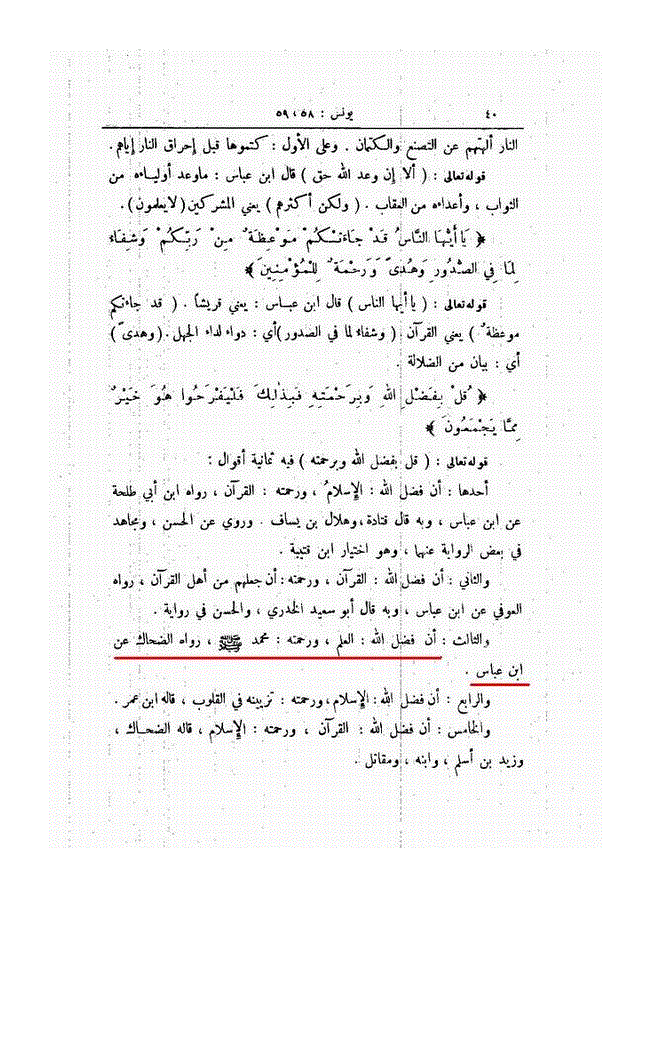 ٤٠ يونس : ٥٨ ، ٥٩
النار ألهتهم عن التصنع والكتمان . وعلى الأول : كتموها قبل إحراق النار إياهم .
قوله تعالى : ( ألا إن وعد الله حق ) قال ابن عباس : ماوعد أولياءه من
الثواب ، وأعداءه من العقاب . ( ولكن أكثرهم ) يعني المشركين ( لايعلمون ) .
﴿ يَا أَيُّهَا النَّاسُ قَدْ جَاءَتْكُمْ مَوْعِظَةٌ مِنْ رَبِّكُمْ وَشِفَاءٌ
لِمَا فِي الصُّدُورِ وَهُدىً وَرَحْمَةٌ لِلْمُؤْمِنِينَ ﴾
قوله تعالى : ( يا أيها الناس ) قال ابن عباس : يعني قريشاً . ( قد جاءتكم
موعظةٌ ) يعني القرآن . ( وشفاءٌ لما في الصدور ) أي : دواء لداء الجهل . ( وهدىً )
أي : بيان من الضلالة .
﴿ قُلْ بِفَضْلِ اللهِ وَبِرَحْمَتِهِ فَبِذٰلِكَ فَلْيَفْرَحُوا هُوَ خَيْرٌ
مِمَّا يَجْمَعُونَ ﴾
قوله تعالى : ( قل بفضل الله وبرحمته ) فيه ثمانية أقوال :
أحدها : أن فضل الله : الإسلامُ ، ورحمته : القرآن ، رواه ابن أبي طلحة
عن ابن عباس ، وبه قال قتادة ، وهلال بن يساف . وروي عن الحسن ، ومجاهد
في بعض الرواية عنهما ، وهو اختيار ابن قتيبة .
والثاني : أن فضل الله : القرآن ، ورحمته : أن جعلهم من أهل القرآن ، رواه
العوفي عن ابن عباس ، وبه قال أبو سعيد الخدري ، والحسن في رواية .
والثالث : أن فضل الله : العلم ، ورحمته : محمد ﷺ ، رواه الضحاك عن
ابن عباس .
والرابع : أن فضل الله : الإسلام ، ورحمته : تزيينه في القلوب ، قاله ابن عمر .
والخامس : أن فضل الله : القرآن ، ورحمته : الإسلام ، قاله الضحاك ،
وزيد بن أسلم ، وابنه ، ومقاتل .